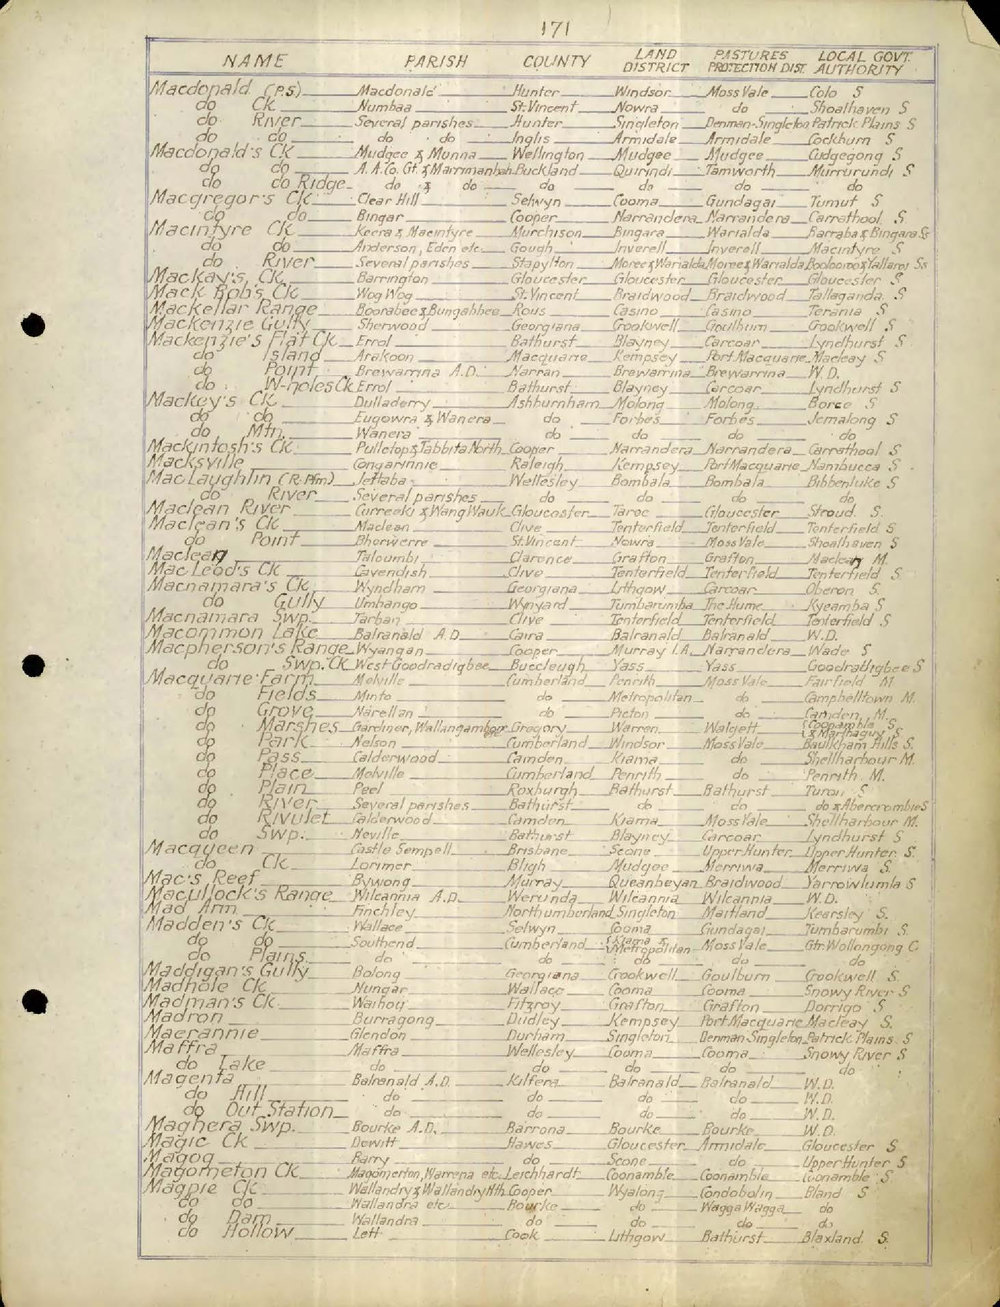 171
NAME PARISH COUNTY LAND DISTRICT PASTURES PROTECTION DIST. LOCAL GOVT. AUTHORITY
Macdonald (P.S) Macdonald Hunter Windsor Moss Vale Colo S
do Ck Numbaa St. Vincent Nowra do Shoalhaven S
do River Several parishes Hunter Singleton Denman-Singleton Patrick Plains S
do do do do Inglis Armidale Armidale Cockburn S
Macdonald's Ck Mudgee & Munna Wellington Mudgee Mudgee Cudgegong S
do do A.A.Co. Gt. & Buckland Quirindi Tamworth Murrurundi S
do do Ridge do & do do do do do
Macgregor's Ck Clear Hill Selwyn Cooma Gundagai Tumut S
do do Bingar Cooper Narrandera Narrandera Carrathool S
Macintyre Ck Keera & Macintyre Murchison Bingara Warialda Barraba & Bingara Ss
do do Anderson, Eden etc. Gough Inverell Inverell Macintyre S
do River Several parishes Stapylton Moree & Warialda Moree & Warialda Boolooroo & Yallaroi Ss
MacKay's Ck Barrington Gloucester Gloucester Gloucester Gloucester S
Mack Bob's Ck Wog Wog St. Vincent Braidwood Braidwood Tallaganda S
MacKellar Range Boonabee & Bungabbee Rous Casino Casino Terania S
Mackenzie Gully Sherwood Georgiana Crookwell Goulburn Crookwell S
Mackenzie's Flat Ck Errol Bathurst Blayney Carcoar Lyndhurst S
do Island Arakoon Macquarie Kempsey Port Macquarie Macleay S
do Point Brewarrina A.D. Narran Brewarrina Brewarrina W.D.
do W-holes Ck Errol Bathurst Blayney Carcoar Lyndhurst S
Mackey's Ck Dulladerry Ashburnham Molong Molong Boree S
do do Eugowra & Wanera do Forbes Forbes Jemalong S
do Mtn. Wanera do do do do
Mackintosh's Ck Pulletop & Tabbita North Cooper Narrandera Narrandera Carrathool S
Macksville Congarinnie Raleigh Kempsey Port Macquarie Nambucca S
MacLaughlin (R.Pfm) Jettaba Wellesley Bombala Bombala Bibbenluke S
do River Several parishes do do do do
Maclean River Curreeki & Wang Wauk Gloucester Taree Gloucester Stroud S.
Maclean's Ck Maclean Clive Tenterfield Tenterfield Tenterfield S
do Point Bherwerre St. Vincent Nowra Moss Vale Shoalhaven S
Maclean Taloumbi Clarence Grafton Grafton Maclean M.
MacLeod's Ck Cavendish Clive Tenterfield Tenterfield Tenterfield S
Macnamara's Ck Wyndham Georgiana Lithgow Carcoar Oberon S.
do Gully Umbango Wynyard Tumbarumba The Hume Kyeamba S
Macnamara Swp. Tarban Clive Tenterfield Tenterfield Tenterfield S
Macommon Lake Balranald A.D. Caira Balranald Balranald W.D.
Macpherson's Range Wyangan Cooper Murray I.A. Narrandera Wade S
do Swp. Ck West Goodradigbee Buccleugh Yass Yass Goodradigbee S
Macquarie Farm Melville Cumberland Penrith Moss Vale Fairfield M
do Fields Minto do Metropolitan do Campbelltown M.
do Grove Narellan do Picton do Camden M.
do Marshes Gardiner, Wallangambone etc Gregory Warren Walgett (Coonamble S. & Marthaguy S
do Park Nelson Cumberland Windsor Moss Vale Baulkham Hills S.
do Pass Calderwood Camden Kiama do Shellharbour M.
do Place Melville Cumberland Penrith do Penrith M.
do Plain Peel Roxburgh Bathurst Bathurst Turon S
do River Several parishes Bathurst do do do & Abercrombie S
do Rivulet Calderwood Camden Kiama Moss Vale Shellharbour M.
do Swp. Neville Bathurst Blayney Carcoar Lyndhurst S
Macqueen Castle Sempell Brisbane Scone Upper Hunter Upper Hunter S.
do Ck Lorimer Bligh Mudgee Merriwa Merriwa S.
Mac's Reef Bywong Murray Queanbeyan Braidwood Yarrowlumla S
Macullock's Range Wilcannia A.D. Werunda Wilcannia Wilcannia W.D.
Mad Arm Finchley Northumberland Singleton Maitland Kearsley S.
Madden's Ck Wallace Selwyn Cooma Gundagai Tumbarumbi S.
do do Southend Cumberland (Kiama & Metropolitan Moss Vale Gtr. Wollongong C
do Plains do do do do do
Maddigan's Gully Bolong Georgiana Crookwell Goulburn Crookwell S.
Madhole Ck Nungar Wallace Cooma Cooma Snowy River S
Madman's Ck Waihou Fitzroy Grafton Grafton Dorrigo S
Madron Burragong Dudley Kempsey Port Macquarie Macleay S.
Maerannie Glendon Durham Singleton Denman-Singleton Patrick Plains S
Maffra Maffra Wellesley Cooma Cooma Snowy River S
do Lake do do do do do
Magenta Balranald A.D. Kilfera Balranald Balranald W.D.
do Hill do do do do W.D.
do Out Station do do do do W.D.
Maghera Swp. Bourke A.D. Barrona Bourke Bourke W.D.
Magic Ck Dewitt Hawes Gloucester Armidale Gloucester S
Magog Parry do Scone do Upper Hunter S
Magometon Ck Magomerton, Warrena etc. Leichhardt Coonamble Coonamble Coonamble S
Magpie Ck Wallandry & Wallandry Nth Cooper Wyalong Condobolin Bland S
do do Wallandra etc. Bourke do Wagga Wagga do
do Dam Wallandra do do do do
do Hollow Lett Cook Lithgow Bathurst Blaxland S.